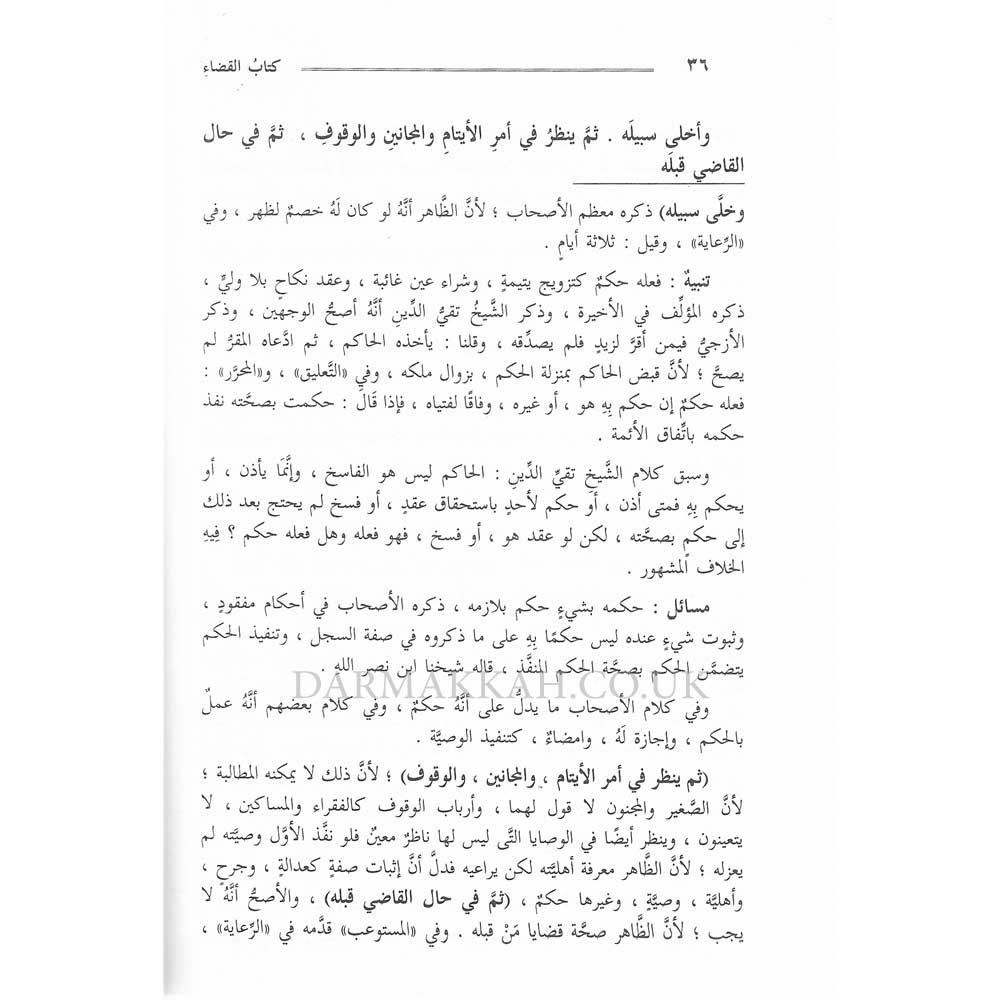 ٣٦ كتابُ القضاءِ
وأخلى سبيلَه . ثمَّ ينظرُ في أمرِ الأيتامِ والمجانينِ والوقوفِ ، ثمَّ في حال
القاضي قبلَه
وخلَّى سبيله) ذكره معظم الأصحاب ؛ لأنَّ الظَّاهر أنَّهُ لو كان لَهُ خصمٌ لظهر ، وفي
«الرِّعاية» ، وقيل : ثلاثة أيامٍ .
تنبيهٌ : فعله حكمٌ كتزويج يتيمةٍ ، وشراء عين غائبة ، وعقد نكاحٍ بلا وليٍّ ،
ذكره المؤلِّف في الأخيرة ، وذكر الشَّيخُ تقيُّ الدِّينِ أنَّهُ أصحُّ الوجهين ، وذكر
الأزجيُّ فيمن أقرَّ لزيدٍ فلم يصدِّقه ، وقلنا : يأخذه الحاكم ، ثم ادَّعاه المقرُّ لم
يصحَّ ؛ لأنَّ قبض الحاكم بمنزلة الحكم ، بزوال ملكه ، وفي «التَّعليق» ، و«المحرَّر» :
فعله حكمٌ إن حكم بِهِ هو ، أو غيره ، وفاقًا لفتياه ، فإذا قَالَ : حكمت بصحَّته نفذ
حكمه باتِّفاق الأئمة .
وسبق كلام الشَّيخِ تقيِّ الدِّينِ : الحاكم ليس هو الفاسخ ، وإنَّمَا يأذن ، أو
يحكم بِهِ فمتى أذن ، أو حكم لأحدٍ باستحقاق عقدٍ ، أو فسخ لم يحتج بعد ذلك
إلى حكمٍ بصحَّته ، لكن لو عقد هو ، أو فسخ ، فهو فعله وهل فعله حكم ؟ فِيهِ
الخلاف المشهور .
مسائل : حكمه بشيءٍ حكم بلازمه ، ذكره الأصحاب في أحكام مفقودٍ ،
وثبوت شيءٍ عنده ليس حكمًا بِهِ على ما ذكروه في صفة السجل ، وتنفيذ الحكم
يتضمَّن الحكم بصحَّة الحكم المنفَّذ ، قاله شيخنا ابن نصر اللهِ .
DARMAKKAH.CO.UK
وفي كلام الأصحاب ما يدلُّ على أنَّهُ حكمٌ ، وفي كلام بعضهم أنَّهُ عملٌ
بالحكم ، وإجازة لَهُ ، وامضاءٌ ، كتنفيذ الوصيَّة .
(ثم ينظر في أمر الأيتام ، والمجانين ، والوقوف) ؛ لأنَّ ذلك لا يمكنه المطالبة ؛
لأنَّ الصَّغير والمجنون لا قول لهما ، وأرباب الوقوف كالفقراء والمساكين ، لا
يتعينون ، وينظر أيضًا في الوصايا التَّي ليس لها ناظرٌ معينٌ فلو نفَّذ الأوَّل وصيَّته لم
يعزله ؛ لأنَّ الظَّاهر معرفة أهليَّته لكن يراعيه فدلَّ أنَّ إثبات صفةٍ كعدالةٍ ، وجرحٍ ،
وأهليَّة ، وصيَّةٍ ، وغيرها حكمٌ ، (ثمَّ في حال القاضي قبله) ، والأصحُّ أنَّهُ لا
يجب ؛ لأنَّ الظَّاهر صحَّة قضايا مَنْ قبله . وفي «المستوعب» قدَّمه في «الرِّعاية» ،